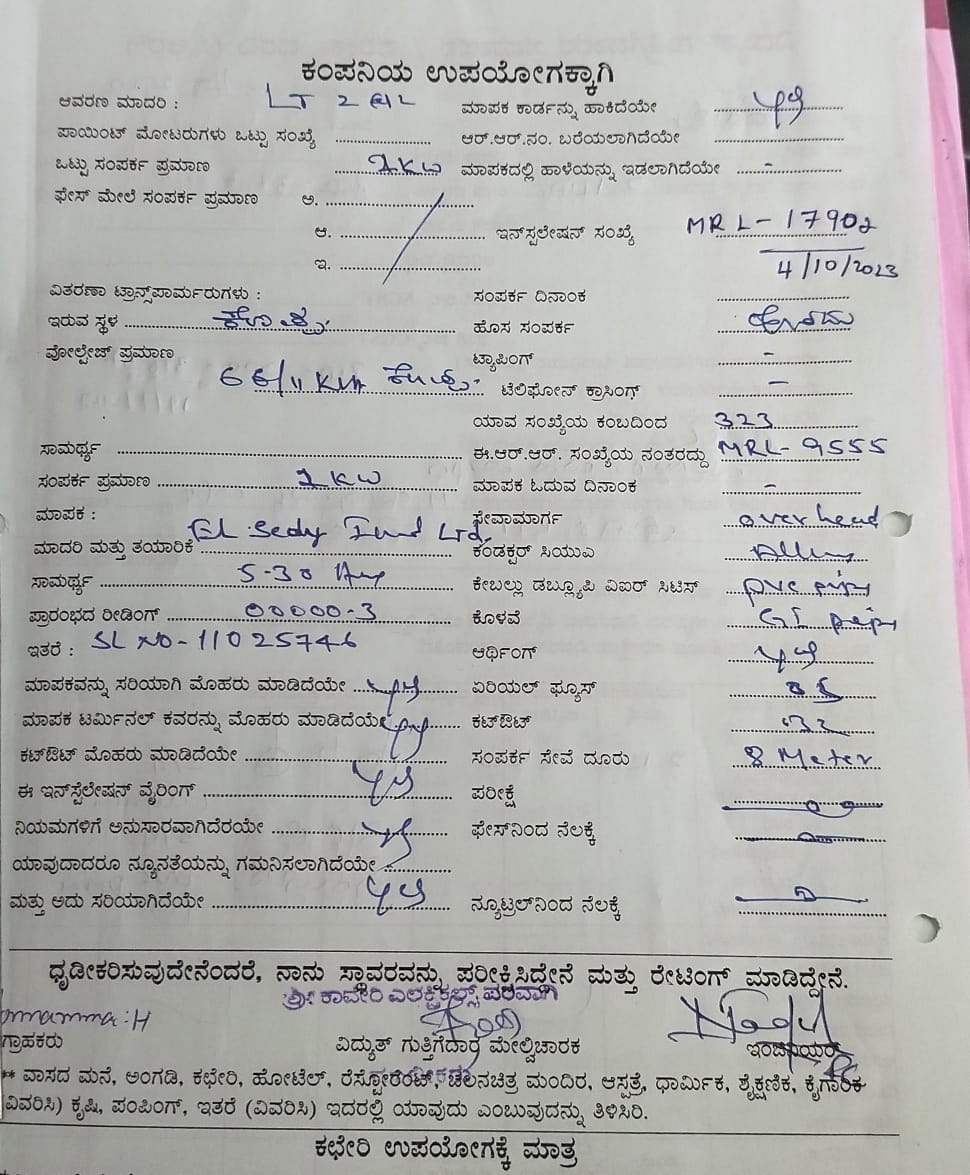 ಕಂಪನಿಯ ಉಪಯೋಗಕ್ಕಾಗಿ
ಆವರಣ ಮಾದರಿ : LT 2 ಮಾಪಕ ಕಾರ್ಡನ್ನು ಹಾಕಿದೆಯೇ
ಪಾಯಿಂಟ್ ಮೋಟರುಗಳು ಒಟ್ಟು ಸಂಖ್ಯೆ ಆರ್.ಆರ್.ನಂ. ಬರೆಯಲಾಗಿದೆಯೇ
ಒಟ್ಟು ಸಂಪರ್ಕ ಪ್ರಮಾಣ 1KW ಮಾಪಕದಲ್ಲಿ ಹಾಳೆಯನ್ನು ಇಡಲಾಗಿದೆಯೇ -
ಫೇಸ್ ಮೇಲೆ ಸಂಪರ್ಕ ಪ್ರಮಾಣ ಅ.
ಆ. ಇನ್‌ಸ್ಪಲೇಷನ್ ಸಂಖ್ಯೆ MRL-17902
ಇ. 4/10/2023
ವಿತರಣಾ ಟ್ರಾನ್ಸ್‌ಪಾರ್ಮರುಗಳು : ಸಂಪರ್ಕ ದಿನಾಂಕ
ಇರುವ ಸ್ಥಳ ಹೊಸ ಸಂಪರ್ಕ ಹೊಸದು
ವೋಲ್ಟೇಜ್ ಪ್ರಮಾಣ ಟ್ಯಾಪಿಂಗ್ -
66/11 ಟೆಲಿಫೋನ್ ಕ್ರಾಸಿಂಗ್ -
ಯಾವ ಸಂಖ್ಯೆಯ ಕಂಬದಿಂದ 323
ಸಾಮರ್ಥ್ಯ ಈ.ಆರ್.ಆರ್. ಸಂಖ್ಯೆಯ ನಂತರದ್ದು MRL-9555
ಸಂಪರ್ಕ ಪ್ರಮಾಣ 1KW ಮಾಪಕ ಓದುವ ದಿನಾಂಕ -
ಮಾಪಕ : ಸೇವಾಮಾರ್ಗ over head
ಮಾದರಿ ಮತ್ತು ತಯಾರಿಕೆ Ltd. ಕಂಡಕ್ಟರ್ ಸಿಯುಎ
ಸಾಮರ್ಥ್ಯ 5-30 Amp ಕೇಬಲ್ಲು ಡಬ್ಲ್ಯೂಪಿ ಎಐರ್ ಸಿಟಿಸ್ pvc pipe
ಪ್ರಾರಂಭದ ರೀಡಿಂಗ್ 00000-3 ಕೊಳವೆ GI pipe
ಇತರೆ : SL NO-11025746 ಆರ್ಥಿಂಗ್
ಮಾಪಕವನ್ನು ಸರಿಯಾಗಿ ಮೊಹರು ಮಾಡಿದೆಯೇ ಏರಿಯಲ್ ಫ್ಯೂಸ್
ಮಾಪಕ ಟರ್ಮಿನಲ್ ಕವರನ್ನು ಮೊಹರು ಮಾಡಿದೆಯೇ ಕಟ್‌ಔಟ್
ಕಟ್‌ಔಟ್ ಮೊಹರು ಮಾಡಿದೆಯೇ ಸಂಪರ್ಕ ಸೇವೆ ದೂರು 8 Meter
ಈ ಇನ್‌ಸ್ಟಲೇಷನ್ ವೈರಿಂಗ್ ಪರೀಕ್ಷೆ
ನಿಯಮಗಳಿಗೆ ಅನುಸಾರವಾಗಿದೆರಯೇ ಫೇಸ್‌ನಿಂದ ನೆಲಕ್ಕೆ
ಯಾವುದಾದರೂ ನ್ಯೂನತೆಯನ್ನು ಗಮನಿಸಲಾಗಿದೆಯೇ
ಮತ್ತು ಅದು ಸರಿಯಾಗಿದೆಯೇ ನ್ಯೂಟ್ರಲ್‌ನಿಂದ ನೆಲಕ್ಕೆ
ಧೃಡೀಕರಿಸುವುದೇನೆಂದರೆ, ನಾನು ಸ್ಥಾವರವನ್ನು ಪರೀಕ್ಷಿಸಿದ್ದೇನೆ ಮತ್ತು ರೇಟಿಂಗ್ ಮಾಡಿದ್ದೇನೆ.
ಶ್ರೀ ಕಾವೇರಿ ಎಲಕ್ಟ್ರಿಕಲ್ಸ್ ಪರವಾಗಿ
ಗ್ರಾಹಕರು ವಿದ್ಯುತ್ ಗುತ್ತಿಗೆದಾರ ಮೇಲ್ವಿಚಾರಕ ಇಂಜಿನಿಯರ್
** ವಾಸದ ಮನೆ, ಅಂಗಡಿ, ಕಛೇರಿ, ಹೋಟೆಲ್, ರೆಸ್ಟೋರೆಂಟ್, ಚಲನಚಿತ್ರ ಮಂದಿರ, ಆಸ್ಪತ್ರೆ, ಧಾರ್ಮಿಕ, ಶೈಕ್ಷಣಿಕ, ಕೈಗಾರಿಕ
ವಿವರಿಸಿ) ಕೃಷಿ, ಪಂಪಿಂಗ್, ಇತರೆ (ವಿವರಿಸಿ) ಇದರಲ್ಲಿ ಯಾವುದು ಎಂಬುವುದನ್ನು ತಿಳಿಸಿರಿ.
ಕಛೇರಿ ಉಪಯೋಗಕ್ಕೆ ಮಾತ್ರ